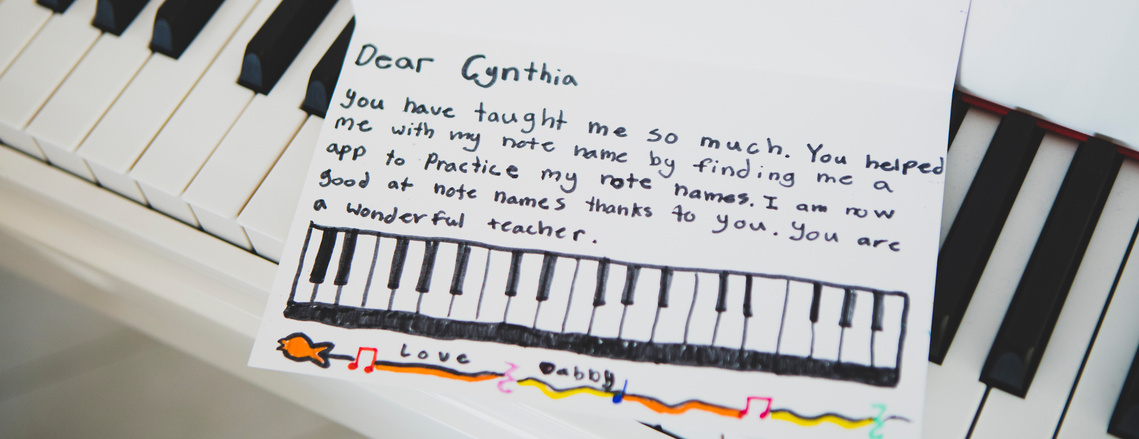 Dear Cynthia
you have taught me so much. You helped
me with my note name by finding me a
app to Practice my note names. I am now
good at note names thanks to you. You are
a wonderful teacher.
Love Dabby